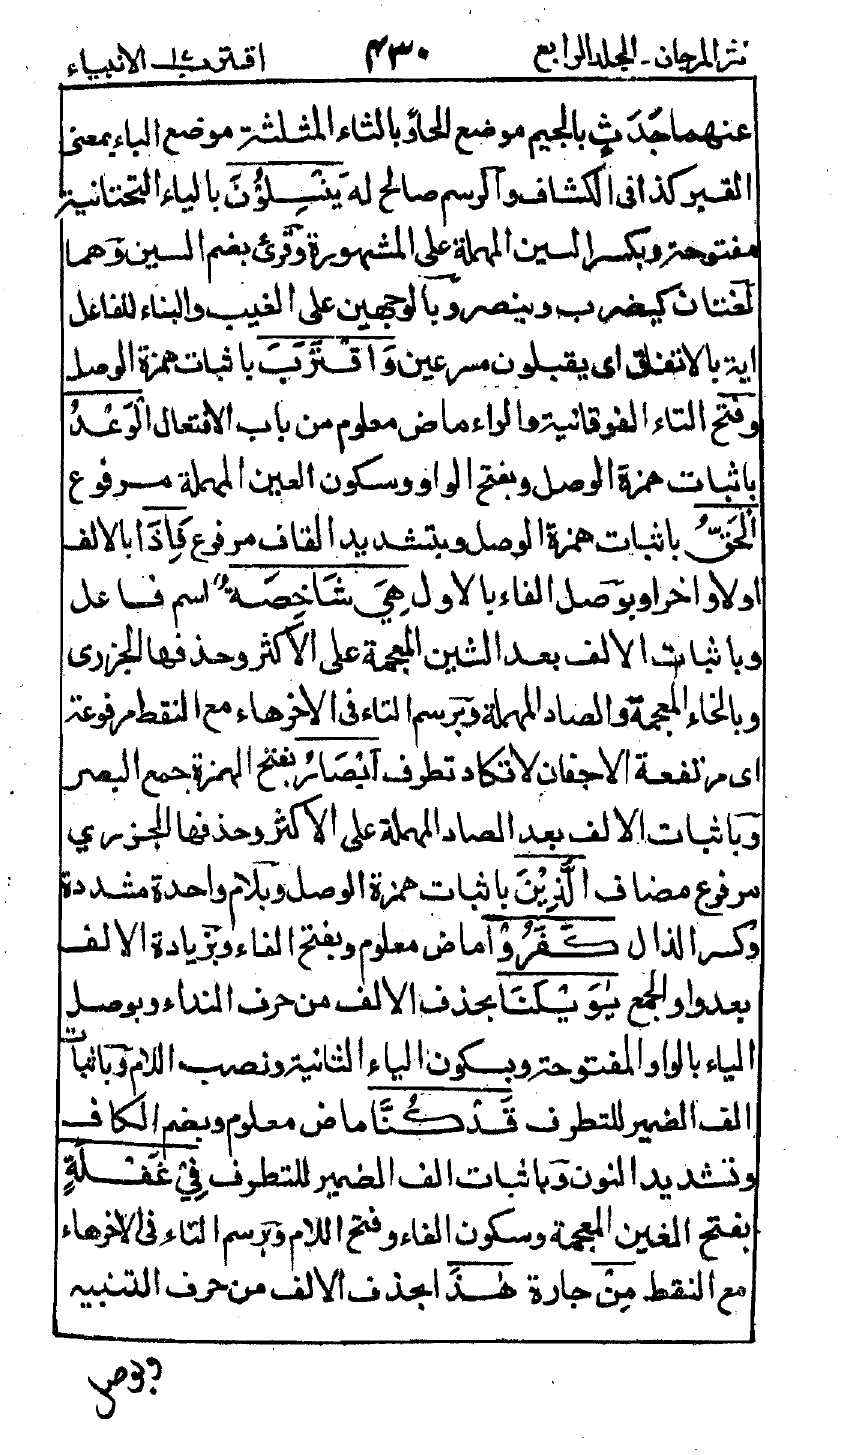 نثر المرجان ـ المجلد الرابع ۴۳۰ اقترب ١٧ الانبياء
عنهما جَدَثٍ بالجيم موضع الحاء وبالثاء المثلثة موضع الباء بمعنى
القبر كذا فى الكشاف والرسم صالح له يَنْسِلُوْنَ بالياء التحتانية
مفتوحة وبكسر السين المهملة على المشهورة وقرئ بضم السين وهما
لغتان كيضرب وينصر وبالوجهين على الغيب والبناء للفاعل
اية بالاتفاق اى يقبلون مسرعين وَاقْتَرَبَ باثبات همزة الوصل
وفتح التاء الفوقانية والراء ماض معلوم من باب الافتعال الْوَعْدُ
باثبات همزة الوصل وبفتح الواو وسكون العين المهملة مرفوع
الْحَقُّ باثبات همزة الوصل وبتشديد القاف مرفوع فَاِذَا بالالف
اولا واخرا وبوصل الفاء بالاول هِيَ شَاخِصَةٌ اسم فاعل
وباثبات الالف بعد الشين المعجمة على الاكثر وحذفها الجزرى
وبالخاء المعجمة والصاد المهملة وبرسم التاء فى الاخر هاء مع النقط مرفوعة
اى مرتفعة الاجفان لا تكاد تطرف اَبْصَارُ بفتح الهمزة جمع البصر
وباثبات الالف بعد الصاد المهملة على الاكثر وحذفها الجزري
مرفوع مضاف الَّذِيْنَ باثبات همزة الوصل وبلام واحدة مشددة
وكسر الذال كَفَرُوْا ماض معلوم وبفتح الفاء وبزيادة الالف
بعد واو الجمع يٰوَيْلَنَا بحذف الالف من حرف النداء وبوصل
الياء بالواو المفتوحة وبسكون الياء الثانية ونصب اللام وباثبات
الف الضمير للتطرف قَدْ كُنَّا ماض معلوم وبضم الكاف
وتشديد النون وباثبات الف الضمير للتطرف فِيْ غَفْلَةٍ
بفتح الغين المعجمة وسكون الفاء وفتح اللام وبرسم التاء فى الاخر هاء
مع النقط مِنْ جارة هٰذَا بحذف الالف من حرف التنبيه
وبوصل